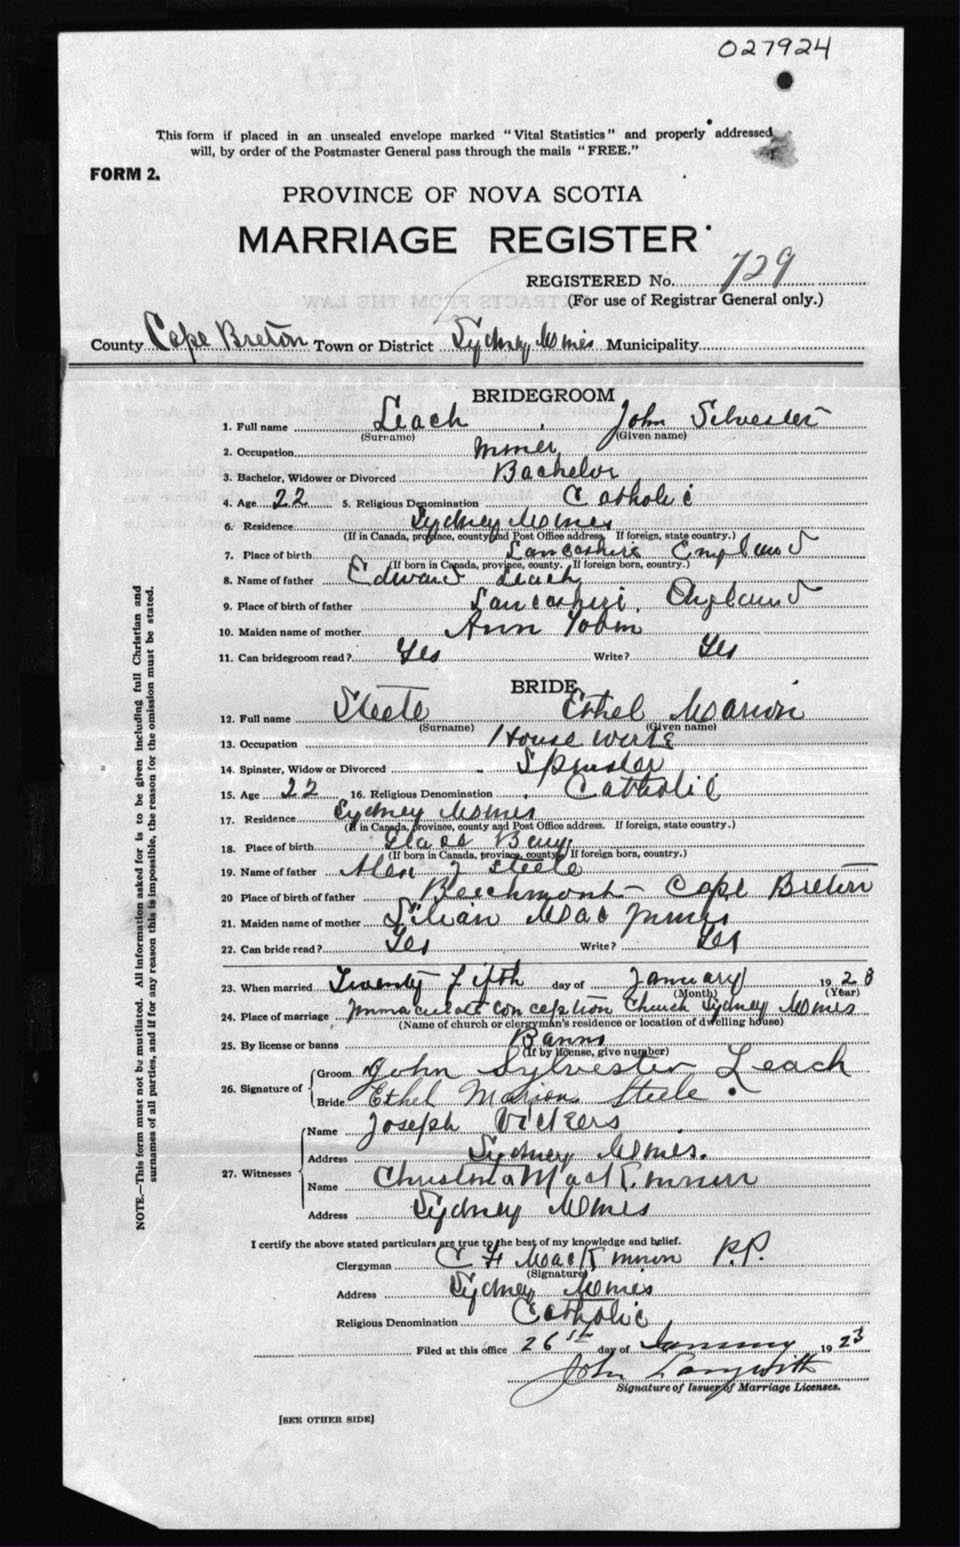 027924
This form if placed in an unsealed envelope marked "Vital Statistics" and properly addressed
will, by order of the Postmaster General pass through the mails "FREE."
FORM 2.
PROVINCE OF NOVA SCOTIA
MARRIAGE REGISTER
REGISTERED No. 729
(For use of Registrar General only.)
County Cape Breton Town or District Sydney Mines Municipality
BRIDEGROOM
1. Full name Leach John Silvester
(Surname) (Given name)
2. Occupation Miner
3. Bachelor, Widower or Divorced Bachelor
4. Age 22 5. Religious Denomination Catholic
6. Residence Sydney Mines
(If in Canada, province, county and Post Office address. If foreign, state country.)
7. Place of birth Lancashire England
(If born in Canada, province, county. If foreign born, country.)
8. Name of father Edward Leach
9. Place of birth of father Lancashire, England
10. Maiden name of mother Ann Tobin
11. Can bridegroom read? Yes Write? Yes
BRIDE
12. Full name Steele Ethel Marion
(Surname) (Given name)
13. Occupation House work
14. Spinster, Widow or Divorced Spinster
15. Age 22 16. Religious Denomination Catholic
17. Residence Sydney Mines
(If in Canada, province, county and Post Office address. If foreign, state country.)
18. Place of birth Glace Bay
(If born in Canada, province, county. If foreign born, country.)
19. Name of father Alex J Steele
20 Place of birth of father Beechmont Cape Breton
21. Maiden name of mother Lilian MacInnis
22. Can bride read? Yes Write? Yes
23. When married Twenty Fifth day of January 1923
(Month) (Year)
24. Place of marriage Immaculate Conception Church Sydney Mines
(Name of church or clergyman's residence or location of dwelling house)
25. By license or banns Banns
(If by license, give number)
26. Signature of Groom John Sylvester Leach
Bride Ethel Marion Steele
27. Witnesses Name Joseph Vickers
Address Sydney Mines.
Name Christina MacKinnon
Address Sydney Mines
I certify the above stated particulars are true to the best of my knowledge and belief.
Clergyman C F MacKinnon P.P.
(Signature)
Address Sydney Mines
Religious Denomination Catholic
Filed at this office 26st day of January 1923
John Langwith
Signature of Issuer of Marriage Licenses.
[SEE OTHER SIDE]
NOTE.—This form must not be mutilated. All information asked for is to be given including full Christian and
surnames of all parties, and if for any reason this is impossible, the reason for the omission must be stated.